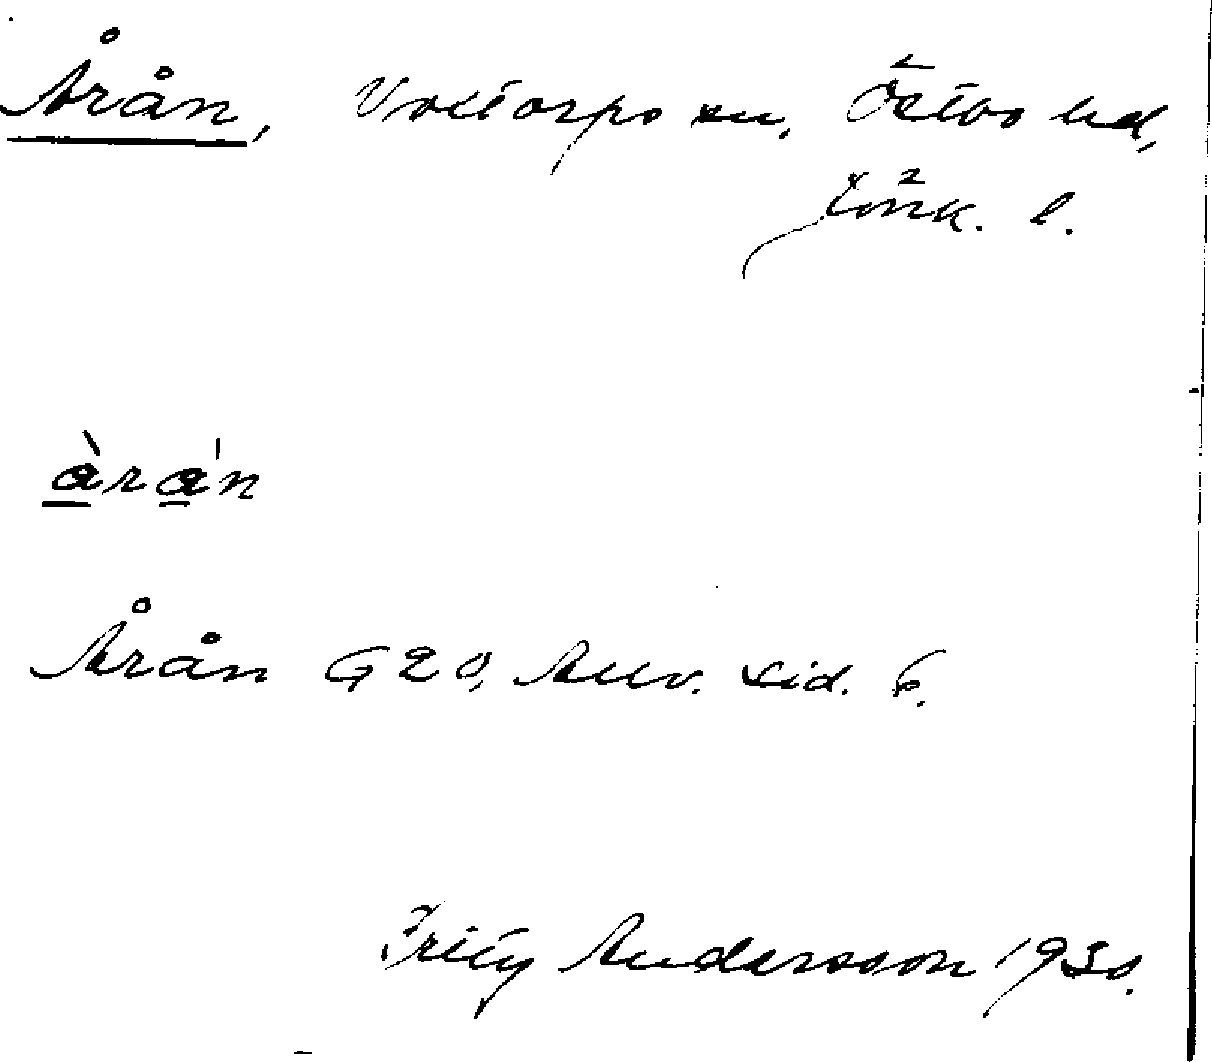 Årån, Voxtorps sn, Östbo hd,
Jönk. l.
àrán
Årån G20, Allv. sid. 6.
Fritz Andersson 1930.